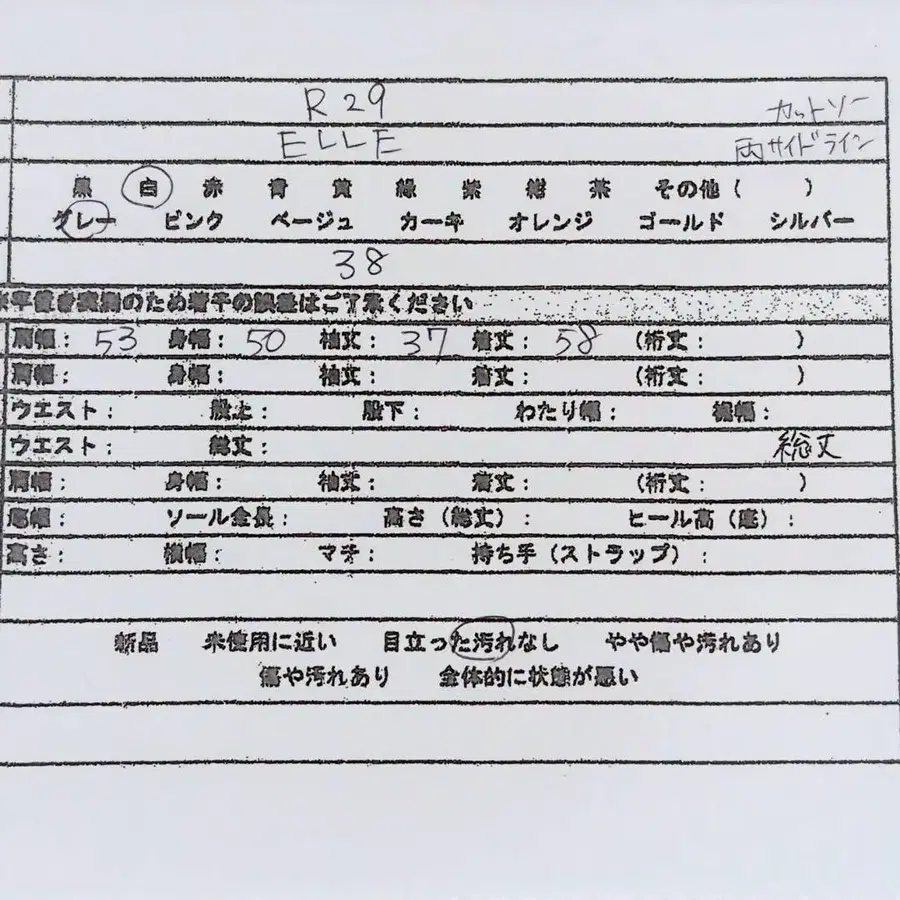 R29 カットソー
ELLE 両サイドライン
黒 白 赤 青 黄 緑 紫 紺 茶 その他( )
グレー ピンク ベージュ カーキ オレンジ ゴールド シルバー
38
※平置き実測のため若干の誤差はご了承ください
肩幅: 53 身幅: 50 袖丈: 37 着丈: 58 (裄丈: )
肩幅: 身幅: 袖丈: 着丈: (裄丈: )
ウエスト: 股上: 股下: わたり幅: 裾幅:
ウエスト: 総丈: 総丈
肩幅: 身幅: 袖丈: 着丈: (裄丈: )
ソール全長: 高さ(総丈): ヒール高(底):
高さ: 横幅: マチ: 持ち手(ストラップ):
新品 未使用に近い 目立った汚れなし やや傷や汚れあり
傷や汚れあり 全体的に状態が悪い